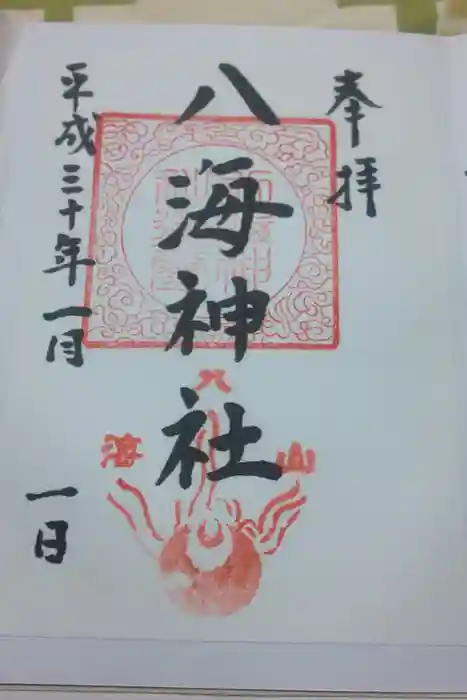 奉拝
八海神社
平成三十年一月
一日
八
海
山